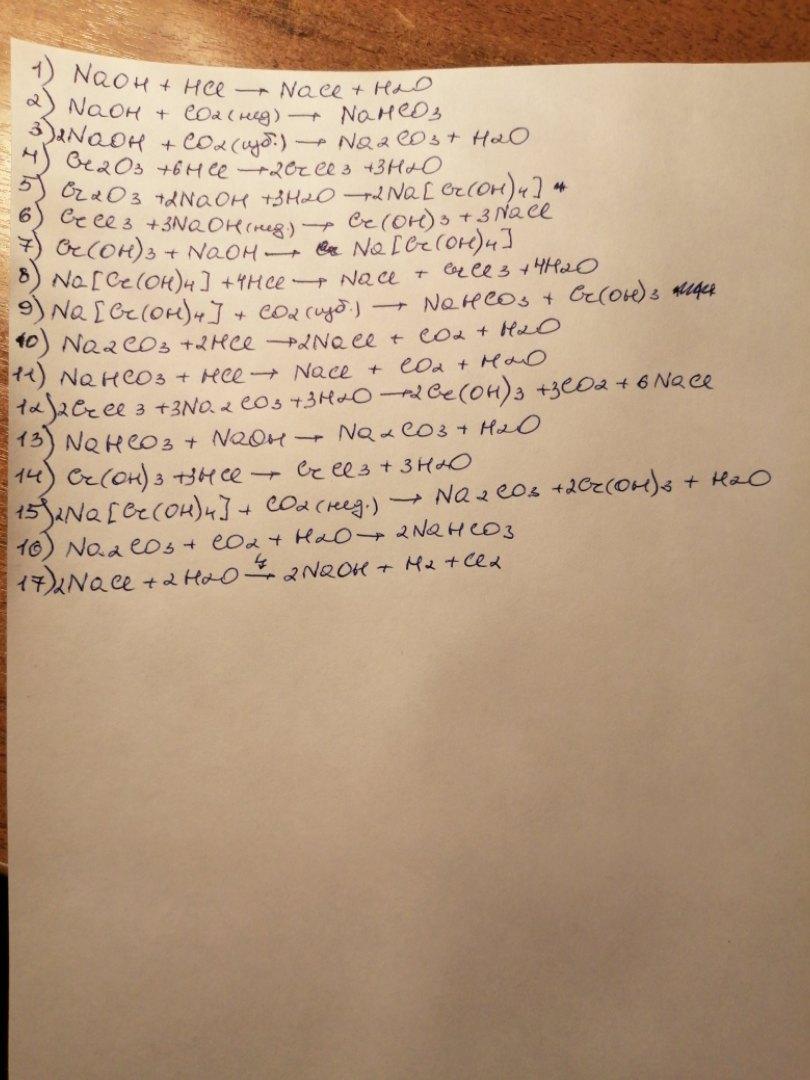 1) NaOH + HCl → NaCl + H2O
2) NaOH + CO2 (нед) → NaHCO3
3) 2NaOH + CO2 (изб.) → Na2CO3 + H2O
4) Cr2O3 + 6HCl → 2CrCl3 + 3H2O
5) Cr2O3 + 2NaOH + 3H2O → 2Na[Cr(OH)4]
6) CrCl3 + 3NaOH (нед.) → Cr(OH)3 + 3NaCl
7) Cr(OH)3 + NaOH → Na[Cr(OH)4]
8) Na[Cr(OH)4] + 4HCl → NaCl + CrCl3 + 4H2O
9) Na[Cr(OH)4] + CO2 (изб.) → NaHCO3 + Cr(OH)3
10) Na2CO3 + 2HCl → 2NaCl + CO2 + H2O
11) NaHCO3 + HCl → NaCl + CO2 + H2O
12) 2CrCl3 + 3Na2CO3 + 3H2O → 2Cr(OH)3 + 3CO2 + 6NaCl
13) NaHCO3 + NaOH → Na2CO3 + H2O
14) Cr(OH)3 + 3HCl → CrCl3 + 3H2O
15) 2Na[Cr(OH)4] + CO2 (нед.) → Na2CO3 + 2Cr(OH)3 + H2O
16) Na2CO3 + CO2 + H2O → 2NaHCO3
17) 2NaCl + 2H2O → 2NaOH + H2 + Cl2